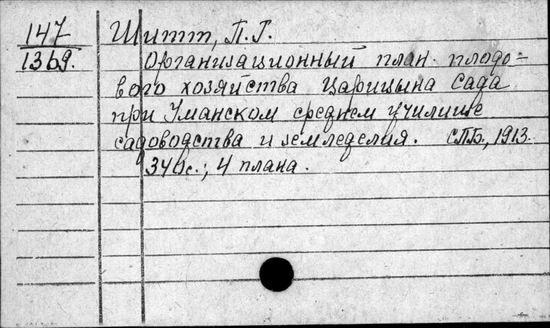 147
1369.
Шитт, П.Г.
Организационный план плодо=
вого хозяйства Царицына Сада
при Уманском среднем училище
садоводства и земледелия. СПБ, 1913.
340с.; 4 плана.